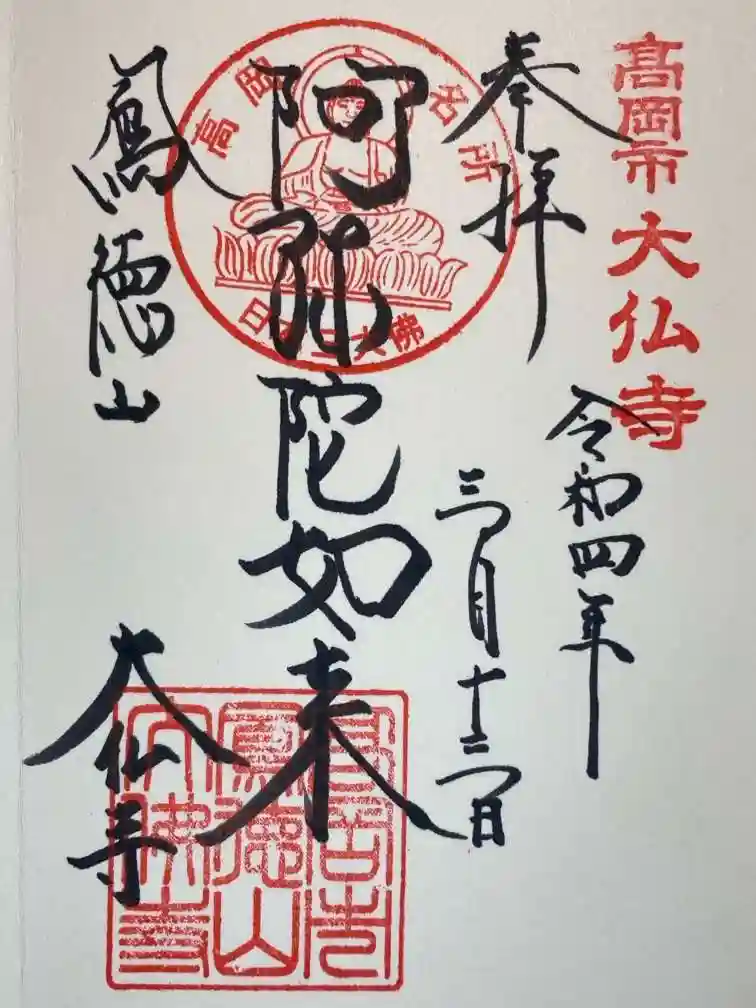 髙岡市大仏寺
奉拝
令和四年
三月十二日
高岡名所
日本三大佛
阿弥陀如来
鳳徳山
大仏寺
鳳徳山
大佛寺